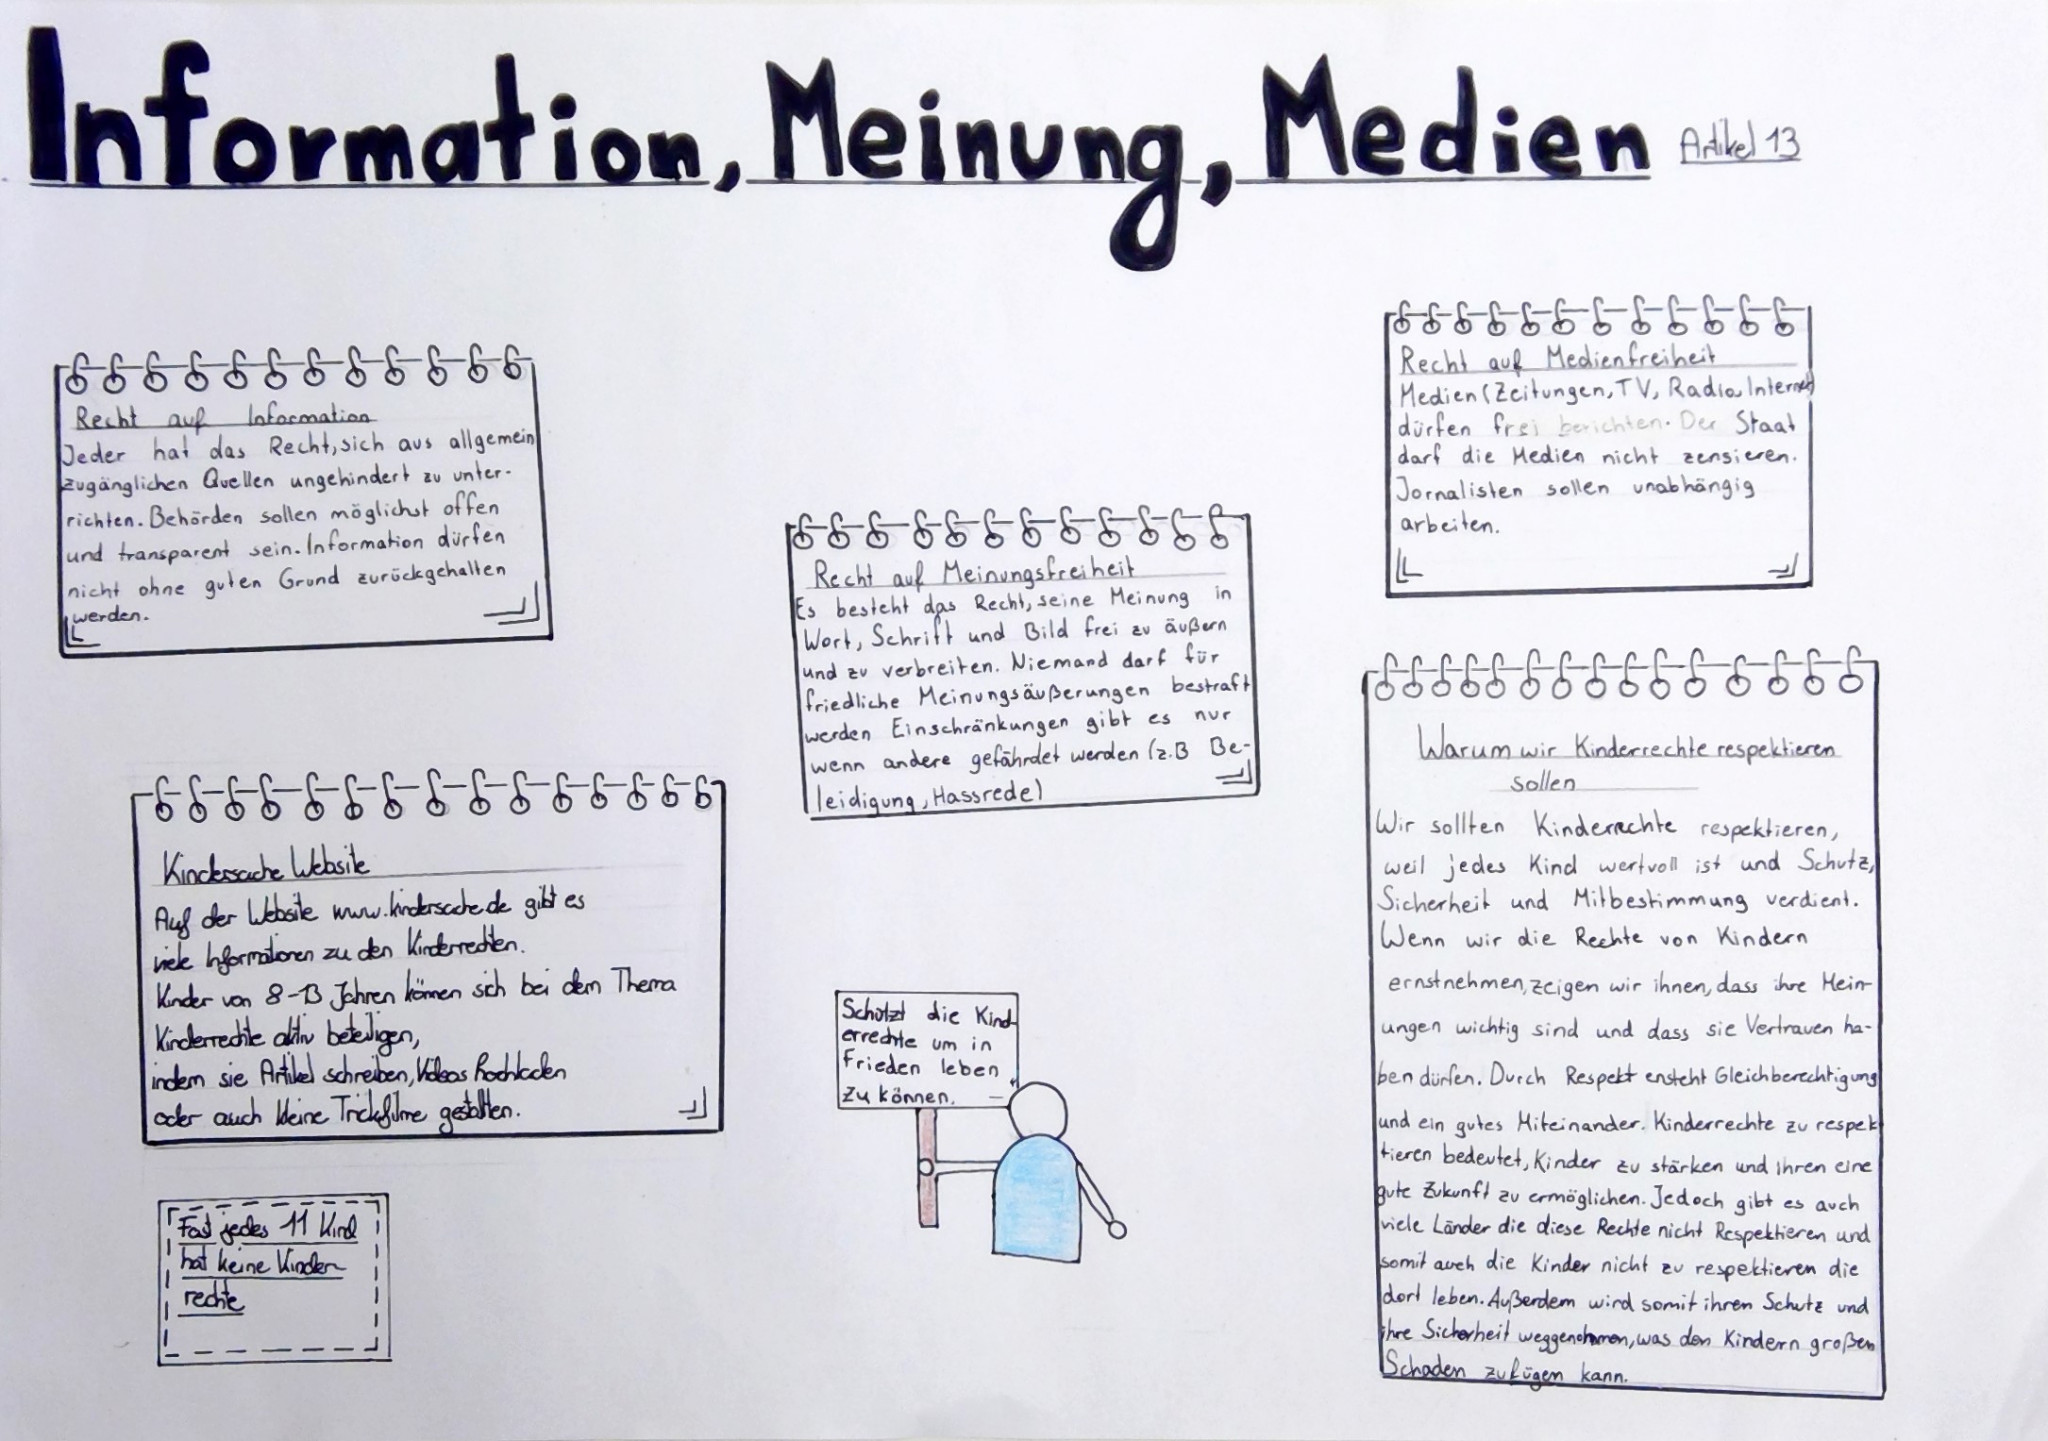 Information, Meinung, Medien Artikel 13
Recht auf Information
Jeder hat das Recht, sich aus allgemein
zugänglichen Quellen ungehindert zu unter-
richten. Behörden sollen möglichst offen
und transparent sein. Information dürfen
nicht ohne guten Grund zurückgehalten
werden.
Kindersache Website
Auf der Website www.kindersache.de gibt es
viele Informationen zu den Kinderrechten.
Kinder von 8-13 Jahren können sich bei dem Thema
Kinderrechte aktiv beteiligen,
indem sie Artikel schreiben, Videos hochladen
oder auch kleine Trickfilme gestalten.
Fast jedes 11 Kind
hat keine Kinder-
rechte
Recht auf Meinungsfreiheit
Es besteht das Recht, seine Meinung in
Wort, Schrift und Bild frei zu äußern
und zu verbreiten. Niemand darf für
friedliche Meinungsäußerungen bestraft
werden Einschränkungen gibt es nur
wenn andere gefährdet werden (z.B Be-
leidigung, Hassrede)
Schützt die Kind-
errechte um in
Frieden leben
zu können.
Recht auf Medienfreiheit
Medien (Zeitungen, TV, Radio, Internet)
dürfen frei berichten. Der Staat
darf die Medien nicht zensieren.
Jornalisten sollen unabhängig
arbeiten.
Warum wir Kinderrechte respektieren
sollen
Wir sollten Kinderrechte respektieren,
weil jedes Kind wertvoll ist und Schutz,
Sicherheit und Mitbestimmung verdient.
Wenn wir die Rechte von Kindern
ernstnehmen, zeigen wir ihnen, dass ihre Mein-
ungen wichtig sind und dass sie Vertrauen ha-
ben dürfen. Durch Respekt ensteht Gleichberechtigung
und ein gutes Miteinander. Kinderrechte zu respek
tieren bedeutet, Kinder zu stärken und ihren eine
gute Zukunft zu ermöglichen. Jedoch gibt es auch
viele Länder die diese Rechte nicht Respektieren und
somit auch die Kinder nicht zu respektieren die
dort leben. Außerdem wird somit ihren Schutz und
ihre Sicherheit weggenohmen, was den Kindern großen
Schaden zufügen kann.